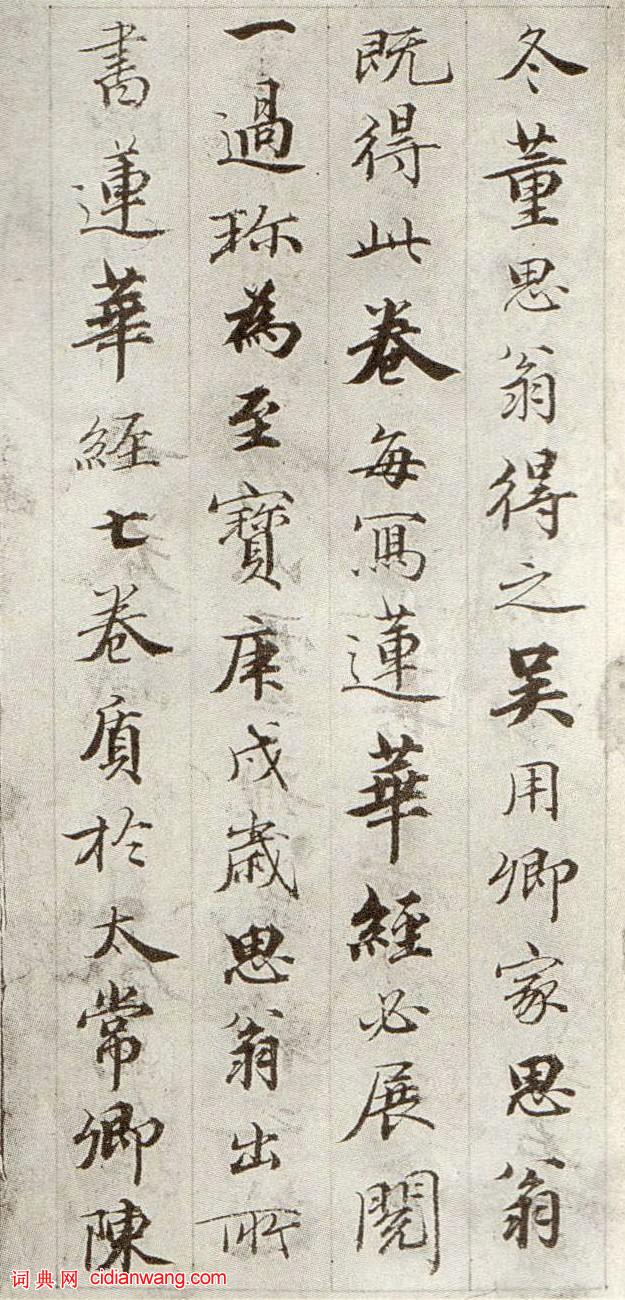 冬董思翁得之吴用卿家思翁
既得此卷每寫蓮華經必展閱
一過珎為至寶庚戌歲思翁出所
書蓮華經七卷質於太常卿陳
词典网 cidianwang.com